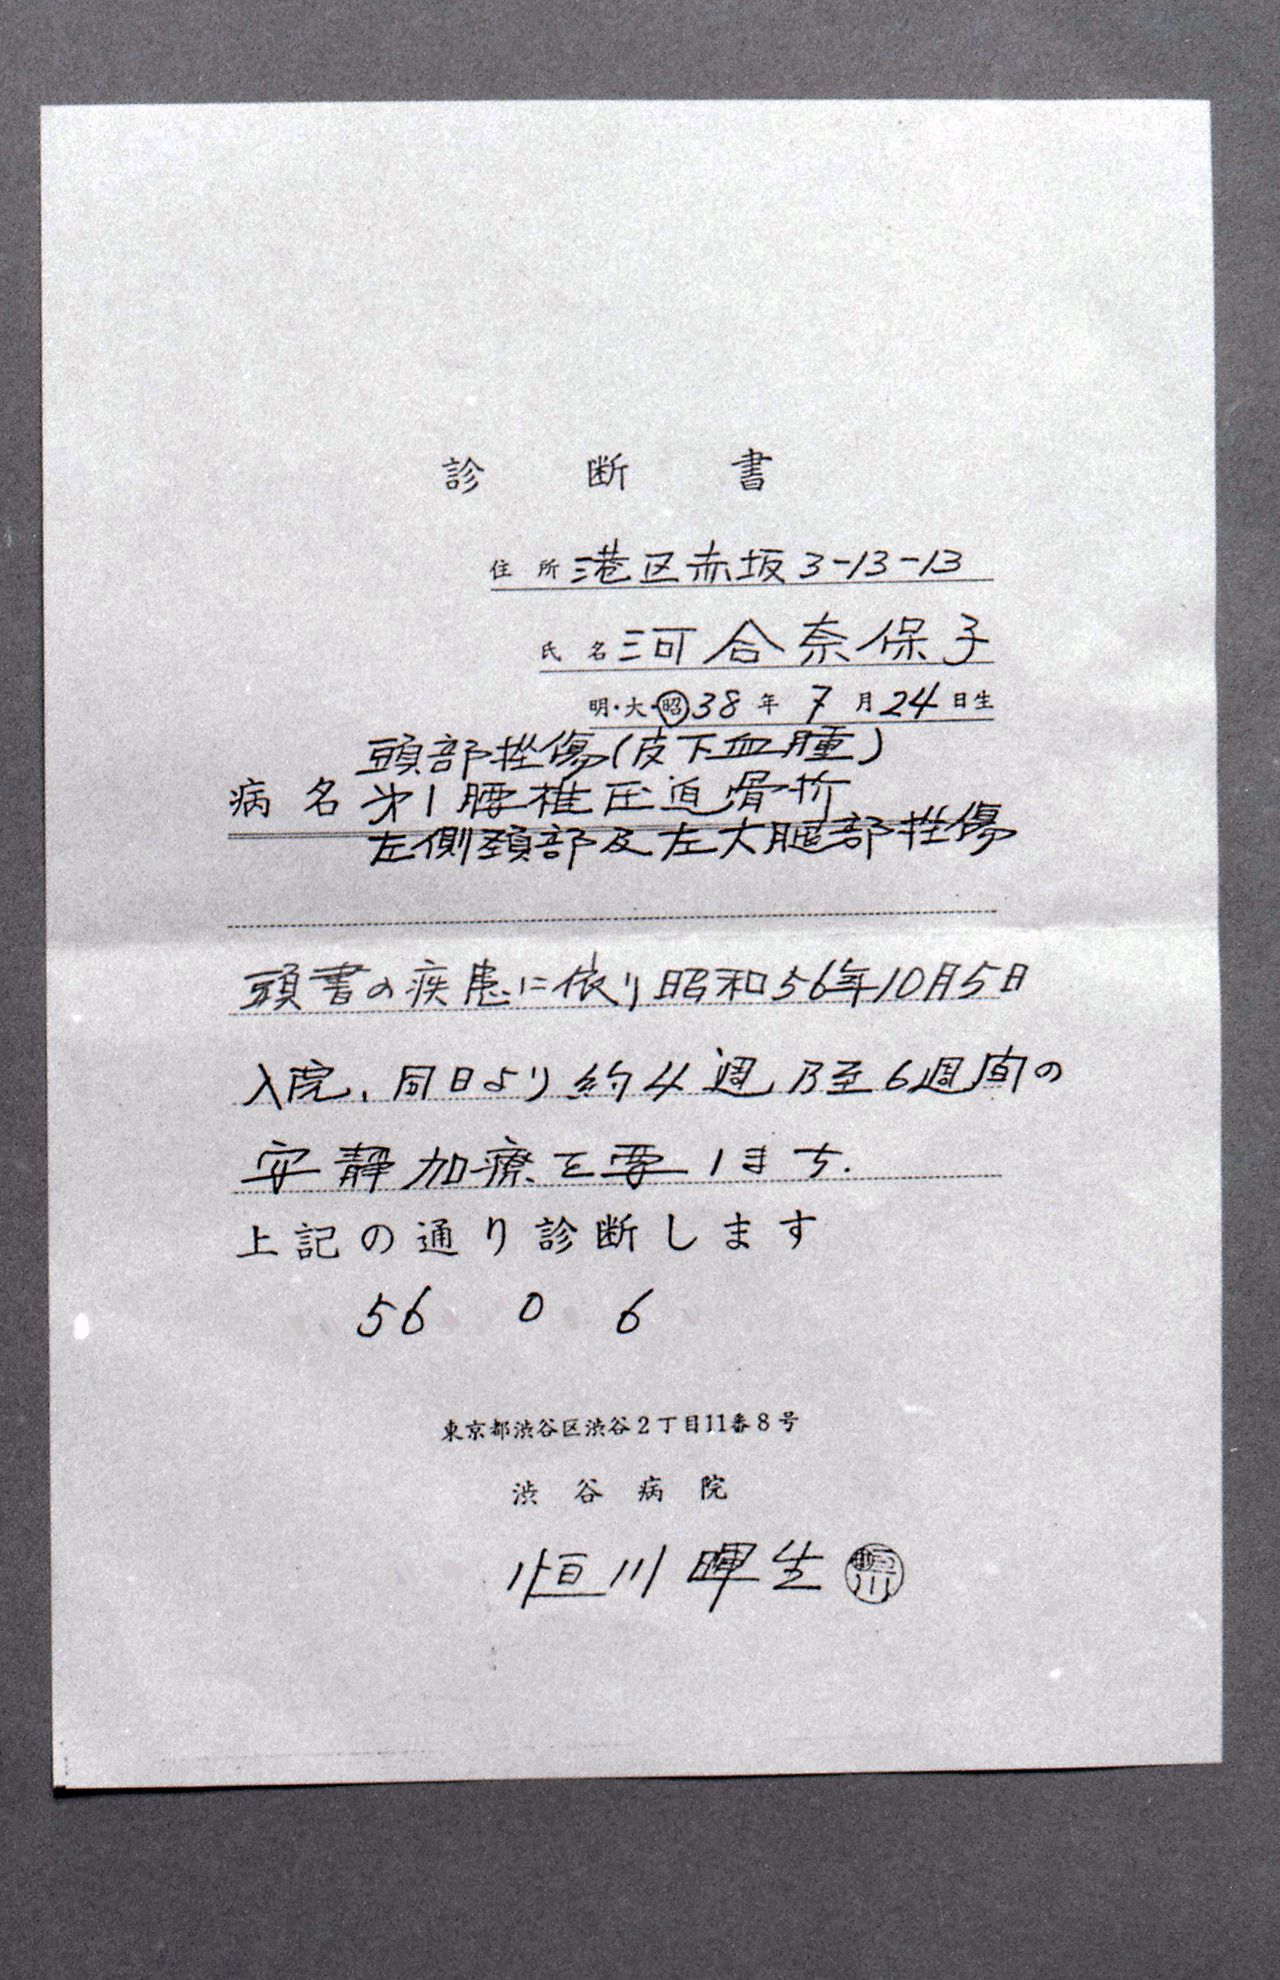 診断書
住所 港区赤坂3-13-13
氏名 河合奈保子
明・大・昭 38年 7月24日生
頭部挫傷(皮下血腫)
病名 第1腰椎圧迫骨折
左側頚部及左大腿部挫傷
頭書の疾患に依り昭和56年10月5日
入院、同日より約4週乃至6週間の
安静加療を要します.
上記の通り診断します
56 0 6
東京都渋谷区渋谷2丁目11番8号
渋谷病院
恒川暉生 恒川